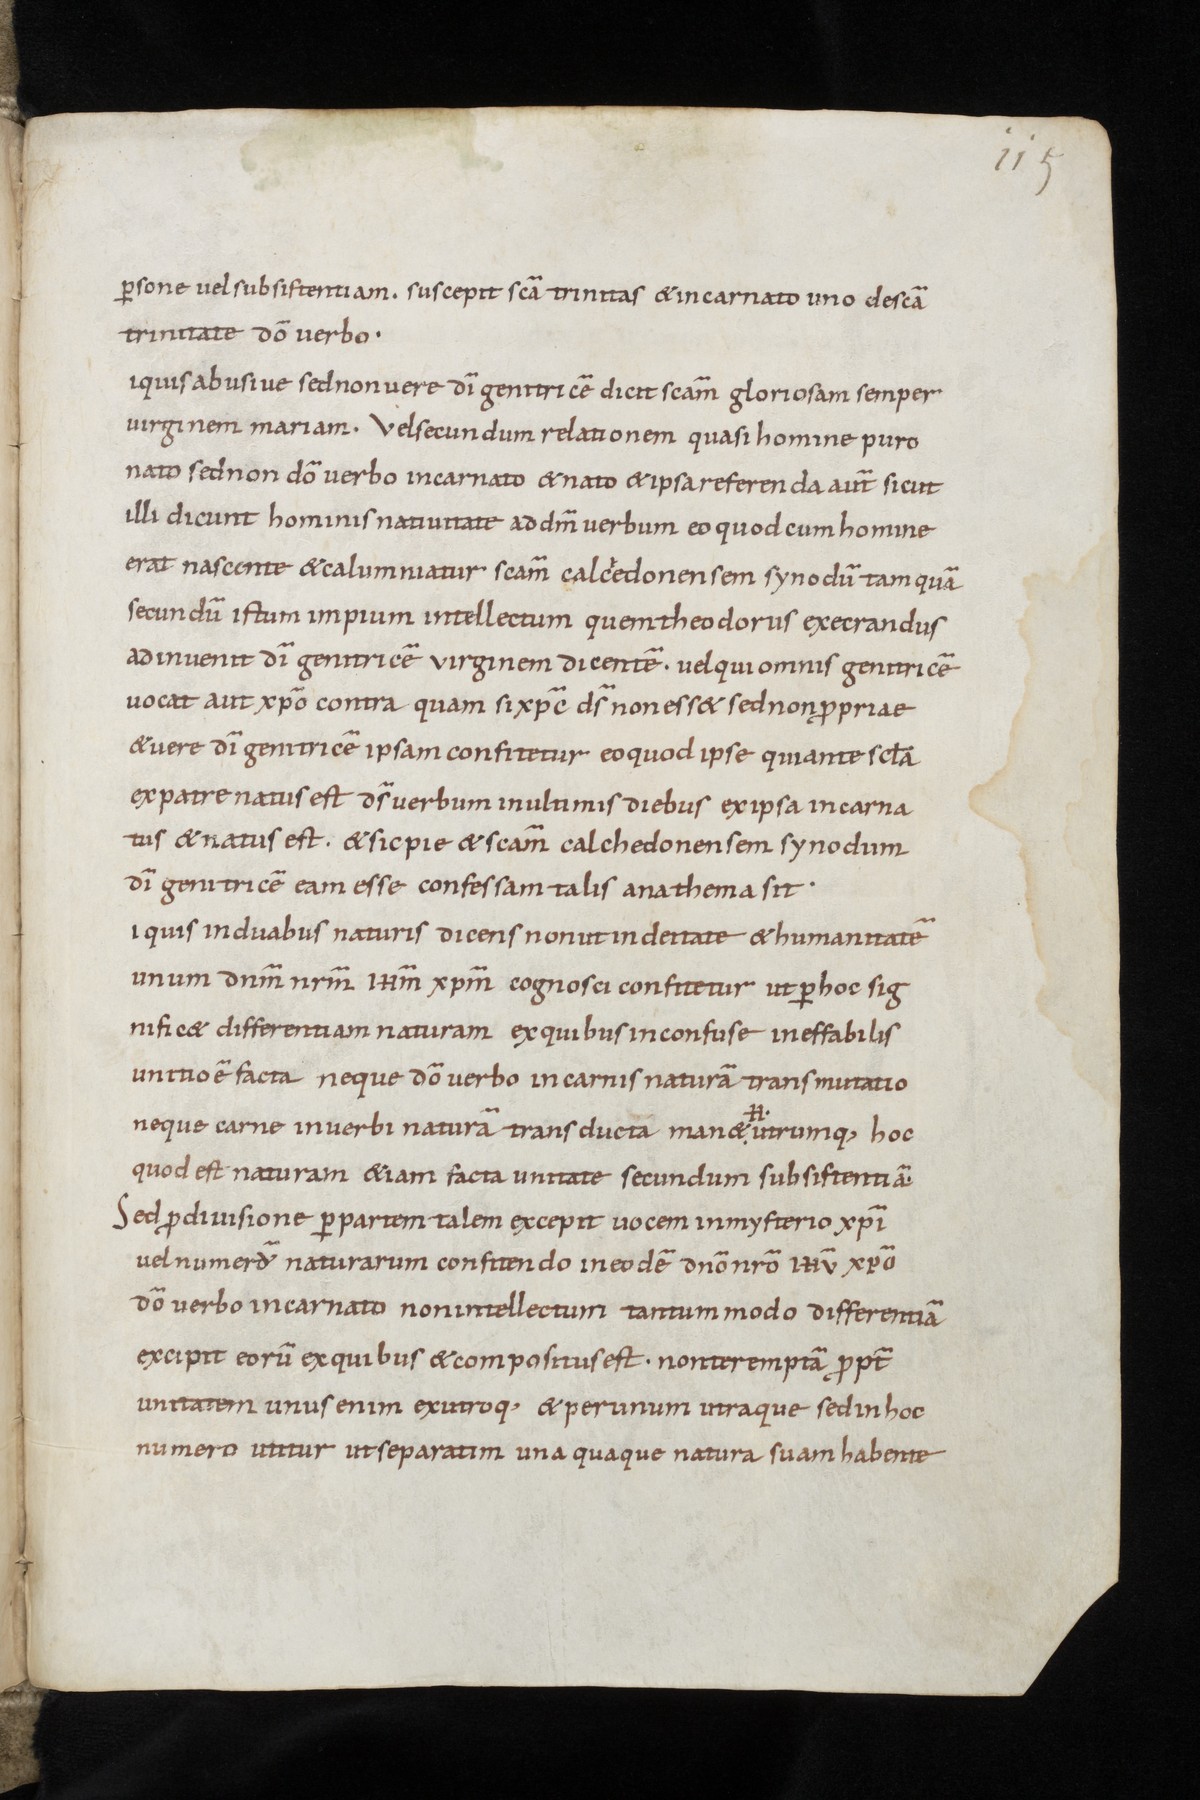 115
p̱sone uel subsistentiam. suscepit scā trinitas & incarnato uno de scā
trinitate dō uerbo·
i quis abusiue sed non uere dī genitricē dicit scam̄ gloriosam semper
uirginem mariam. Vel secundum relationem quasi homine puro
nato sed non dō uerbo incarnato & nato & ipsa referenda aut̄ sicut
illi dicunt hominis natiuitate ad dm̄ uerbum eo quod cum homine
erat nascente & calumniatur scam̄ calcedonensem synodū tamquā
secundū istum impium intellectum quem theodorus execrandus
adinuenit dī genitricē virginem dicentē. uel qui omnis genitricē
uocat aut xpō contra quam si xpc̄ ds̄ non ess& sed non ꝓpriae
& uere dī genitricē ipsam confitetur eo quod ipse qui ante sclā
ex patre natus est ds̄ uerbum in ultimis diebus ex ipsa incarna
tus & natus est. & sic pie & scam̄ calchedonensem synodum
dī genitricē eam esse confessam talis anathema sit·
i quis in duabus naturis dicens non ut in deitate & humanitatē
unum dnm̄ nrm̄ ihm̄ xpm̄ cognosci confitetur ut p̱ hoc sig
nific& differentiam naturam ex quibus inconfuse ineffabilis
unitio ē facta neque dō uerbo in carnis naturā transmutatio
neque carne in uerbi naturā transducta man& utrumq, hoc
quod est naturam &iam facta unitate secundum subsistentiā.
Sed ꝓ diuisione p̱ partem talem excepit uocem in mysterio xpī
uel numerū naturarum confitendo in eodē dnō nrō ihū xpō
dō uerbo incarnato non intellectum tantummodo differentiā
excipit eorū ex quibus & compositus est. non teremptā ꝓpt̄
unitatem unus enim ex utroq, & per unum utraque sed in hoc
numero utitur ut separatim una quaque natura suam habente